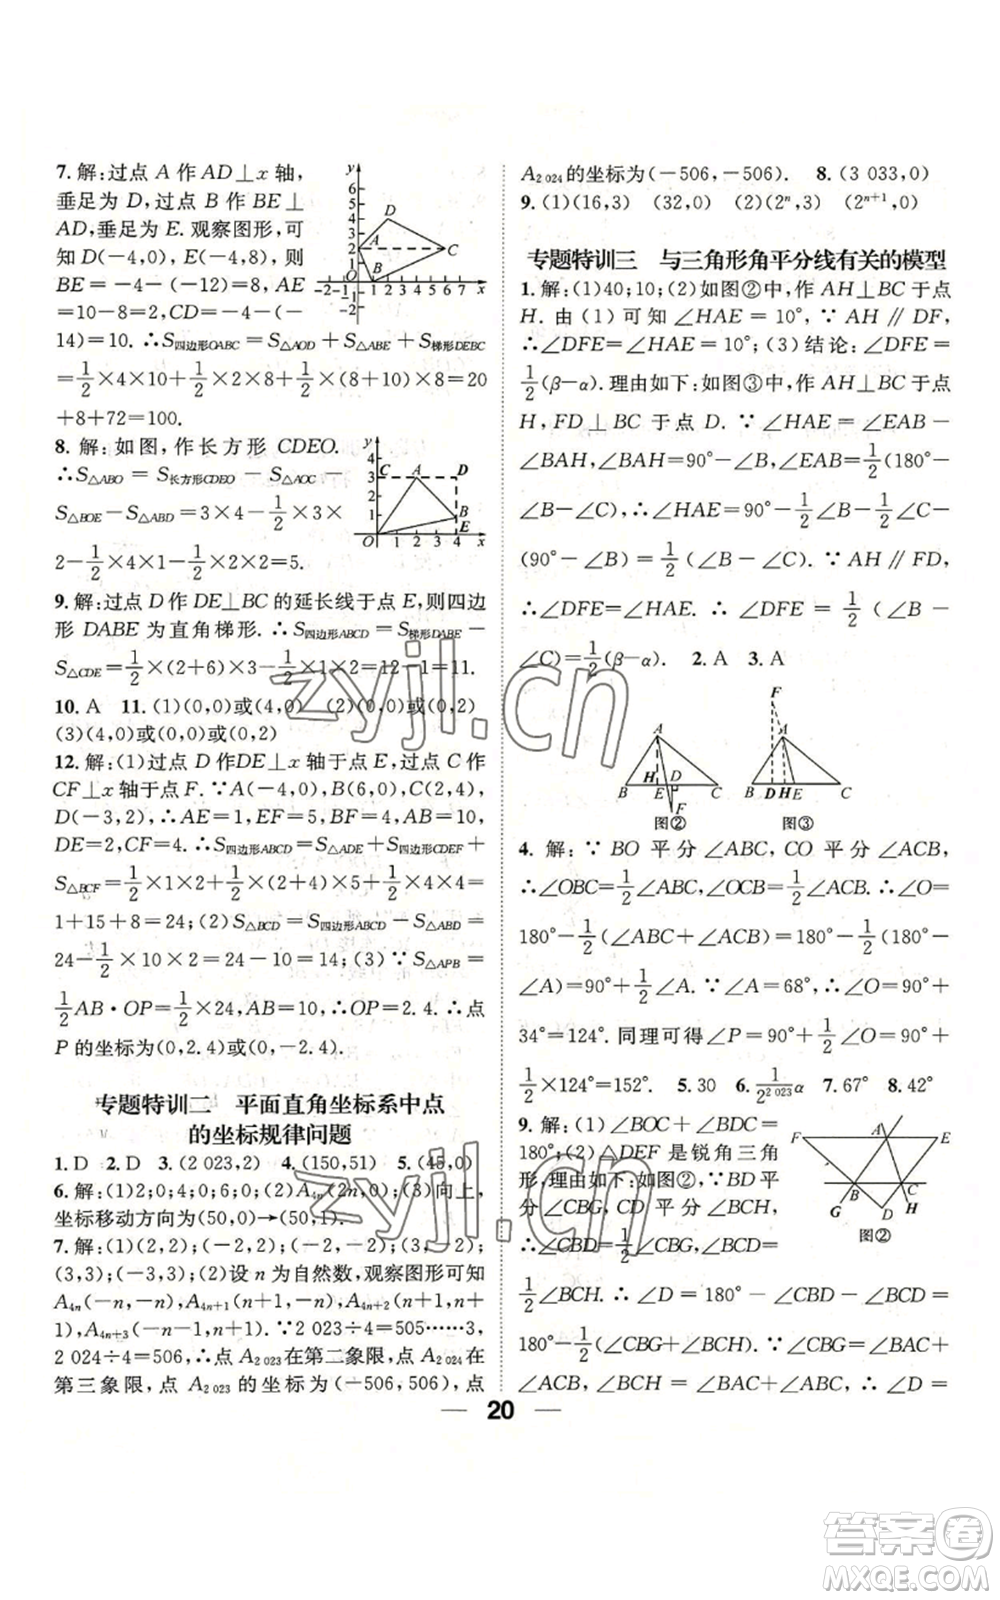 7. 解:过点 A 作 AD⊥x 轴,
垂足为 D,过点 B 作 BE⊥
AD,垂足为 E. 观察图形,可
知 D(-4,0),E(-4,8), 则
BE=-4-(-12)=8,AE
=10-8=2,CD=-4-(-
14)=10. ∴S四边形OABC=S△AOD+S△ABE+S梯形DEBC
=1/2×4×10+1/2×2×8+1/2×(4+10)×8=20
+8+72=100.
8. 解:如图,作长方形 CDEO.
∴S△ABO=S长方形CDEO-S△AOC-
S△BOE-S△ABD=3×4-1/2×3×
2-1/2×4×1-1/2×2×2=5.
9. 解:过点 D 作 DE⊥BC 的延长线于点 E,则四边
形 DABE 为直角梯形. ∴S四边形ABCD=S梯形DABE-
S△CDE=1/2×(2+6)×3-1/2×1×2=12-1=11.
10. A 11. (1)(0,0)或(4,0) (2)(0,0)或(0,2)
(3)(4,0)或(0,0)或(0,2)
12. 解:(1)过点 D 作DE⊥x 轴于点 E,过点 C 作
CF⊥x 轴于点 F. ∵A(-4,0),B(6,0),C(2,4),
D(-3,2),∴AE=1,EF=5,BF=4,AB=10,
DE=2,CF=4. ∴S四边形ABCD=S△ADE+S四边形CDEF+
S△BCF=1/2×1×2+1/2×(2+4)×5+1/2×4×4=
1+15+8=24;(2)S△BCD=S四边形ABCD-S△ABD=
24-1/2×10×2=24-10=14;(3)∵S△APB=
1/2AB·OP=1/2×24,AB=10,∴OP=2.4. ∴点
P 的坐标为(0,2.4)或(0,-2.4).
专题特训二 平面直角坐标系中点
的坐标规律问题
1. D 2. D 3. (2 023,2) 4. (150,51) 5. (45,0)
6. 解:(1)2;0;4;0;6;0;(2)A4n(2n,0);(3)向上,
坐标移动方向为(50,0)→(50,1).
7. 解:(1)(2,2);(-2,2);(-2,-2);(3,-2);
(3,3);(-3,3);(2)设 n 为自然数,观察图形可知
A4n(-n,-n),A4n+1(n+1,-n),A4n+2(n+1,n+
1),A4n+3(-n-1,n+1). ∵2 023÷4=505……3,
2 024÷4=506,∴点 A2 023在第二象限,点 A2 024在
第三象限,点 A2 023 的坐标为(-506,506),点
A2 024的坐标为(-506,-506). 8. (3 033,0)
9. (1)(16,3) (32,0) (2)(2ⁿ,3) (2ⁿ⁺¹,0)
专题特训三 与三角形角平分线有关的模型
1. 解:(1)40;10;(2)如图②中,作 AH⊥BC 于点
H. 由(1)可知∠HAE=10°,∵AH∥DF,
∴∠DFE=∠HAE=10°;(3)结论:∠DFE=
1/2(β-α). 理由如下:如图③中,作 AH⊥BC 于点
H,FD⊥BC 于点 D. ∵∠HAE=∠EAB-
∠BAH,∠BAH=90°-∠B,∠EAB=1/2(180°
-∠B-∠C),∴∠HAE=90°-1/2∠B-1/2∠C-
(90°-∠B)=1/2(∠B-∠C). ∵AH∥FD,
∴∠DFE=∠HAE. ∴∠DFE=1/2(∠B-
∠C)=1/2(β-α). 2. A 3. A
图② 图③
4. 解:∵BO 平分∠ABC,CO 平分∠ACB,
∴∠OBC=1/2∠ABC,∠OCB=1/2∠ACB,∴∠O=
180°-1/2(∠ABC+∠ACB)=180°-1/2(180°-
∠A)=90°+1/2∠A. ∵∠A=68°,∴∠O=90°+
34°=124°. 同理可得∠P=90°+1/2∠O=90°+
1/2×124°=152°. 5. 30 6. 1/2²⁰²³α 7. 67° 8. 42°
9. 解:(1)∠BOC+∠BDC=
180°;(2)△DEF 是锐角三角
形,理由如下:如图②,∵BD平
分∠CBG,CD 平分∠BCH,
∴∠CBD=1/2∠CBG,∠BCD=
1/2∠BCH. ∴∠D=180°-∠CBD-∠BCD=
180°-1/2(∠CBG+∠BCH). ∵∠CBG=∠BAC+
∠ACB,∠BCH=∠BAC+∠ABC,∴∠D=
图②
20
zyjl.cn
zyjl.cn
答案卷
MXQE.COM